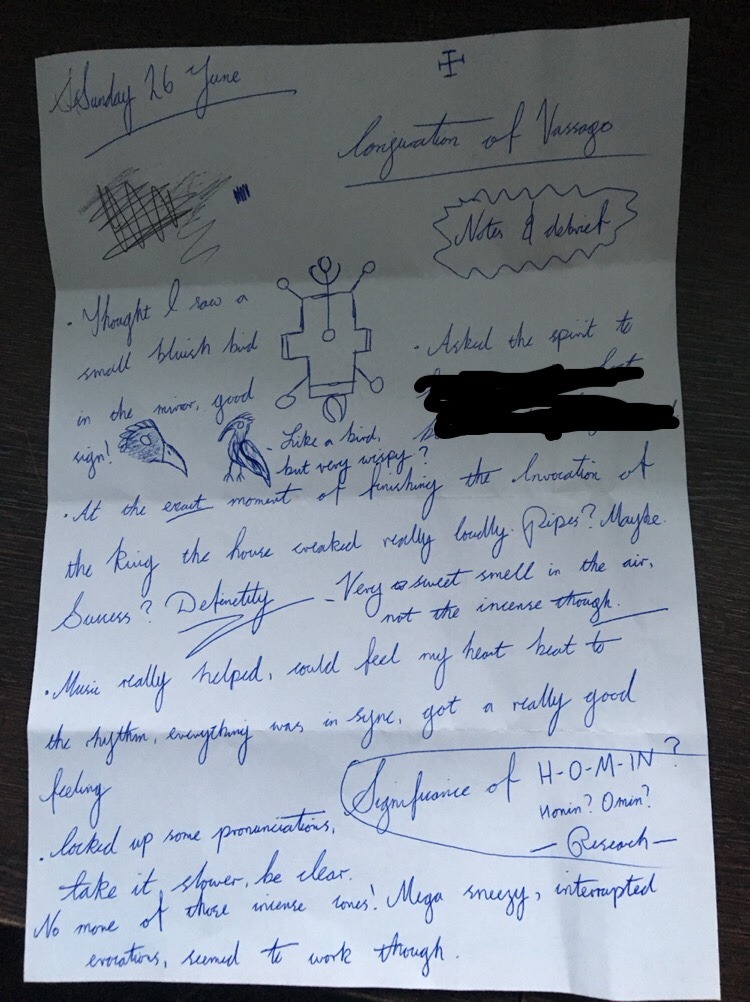 Sunday 26 June
Conjuration of Vassago
Notes & debrief
• Thought I saw a
small bluish bird
in the mirror, good
sign!
- Like a bird,
but very wispy?
• Asked the spirit to
• At the exact moment of finishing the Invocation of
the King the house creaked really loudly. Pipes? Maybe.
Success? Definetity
- Very sweet smell in the air,
not the incense though.
• Music really helped, could feel my heart beat to
the rhythm, everything was in sync, got a really good
feeling
Significance of H-O-M-IN?
Honin? Omin?
- Research -
• Cocked up some pronunciations,
take it slower, be clear.
No more of those incense cones! Mega sneezy, interrupted
evocations, seemed to work though.